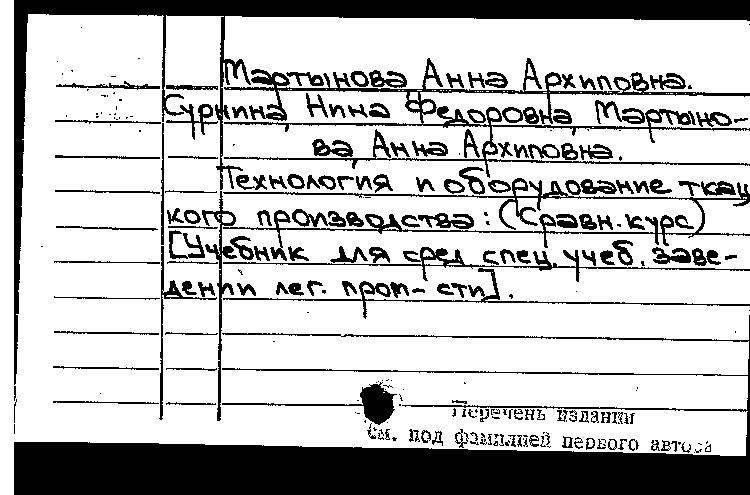 Мартынова Анна Архиповна.
Сурнина, Нина Федоровна, Мартыно-
ва, Анна Архиповна.
Технология и оборудование ткац
кого производства: (Сравн. курс)
[Учебник для сред. спец. учеб. заве-
дений лег. пром-сти].
Перечень издании
См. под фамилией первого автора